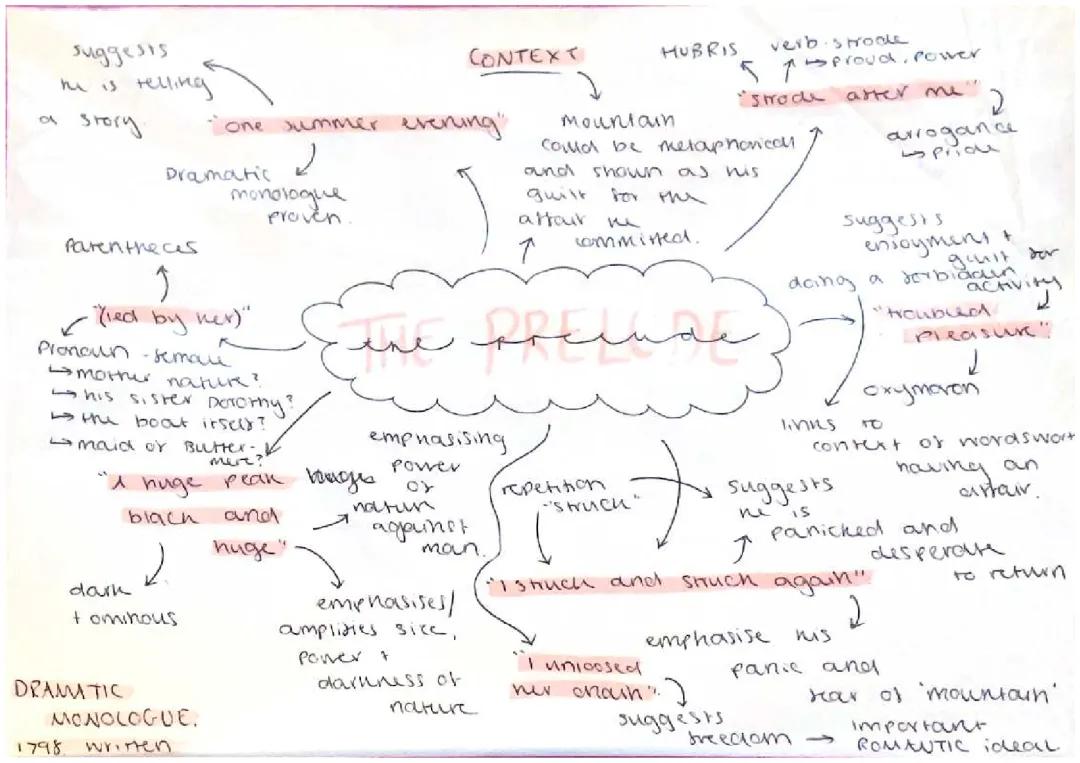 suggests
he is telling
a story.
"one summer evening"
Dramatic
monologue
proven.
CONTEXT
mountain
could be metaphorical
and shown as his
guilt for the
affair he
committed.
HUBRIS
verb-strode
↳ proud, power
"strode after me"
arrogance
↳ pride
Parentheces
"(led by her)"
Pronoun - female
↳ mother nature?
↳ his sister Dorothy?
↳ the boat itself?
↳ maid of Butter-
mere?
THE PRELUDE
the prelude
suggests
enjoyment +
guilt for
doing a forbidden
activity
"troubled
pleasure"
oxymoron
links to
context of wordswort
having an
affair.
"A huge peak
black and
huge"
emphasising
power
of
nature
against
man.
dark
+ ominous
emphasises/
amplifies size,
power +
darkness of
nature
repetition
"struck"
suggests
he is
panicked and
desperate
to return
"I struck and struck again"
emphasise his
panic and
fear of 'mountain'
"I unloosed
her chain".
suggests
freedom → important
ROMANTIC ideal.
DRAMATIC
MONOLOGUE.
1798 written